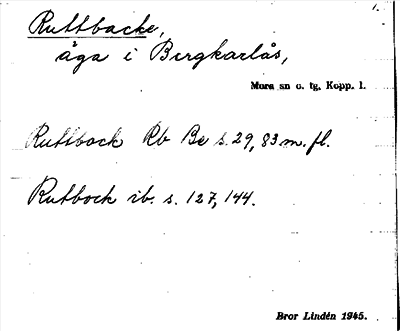 Ruttbacke,
åga i Bergkarlås,
Mora sn o. tg, Kopp. l.
Ruttbock Rb Be s. 29, 83 m. fl.
Rutbock ib. s. 127, 144.
Bror Lindén 1945.